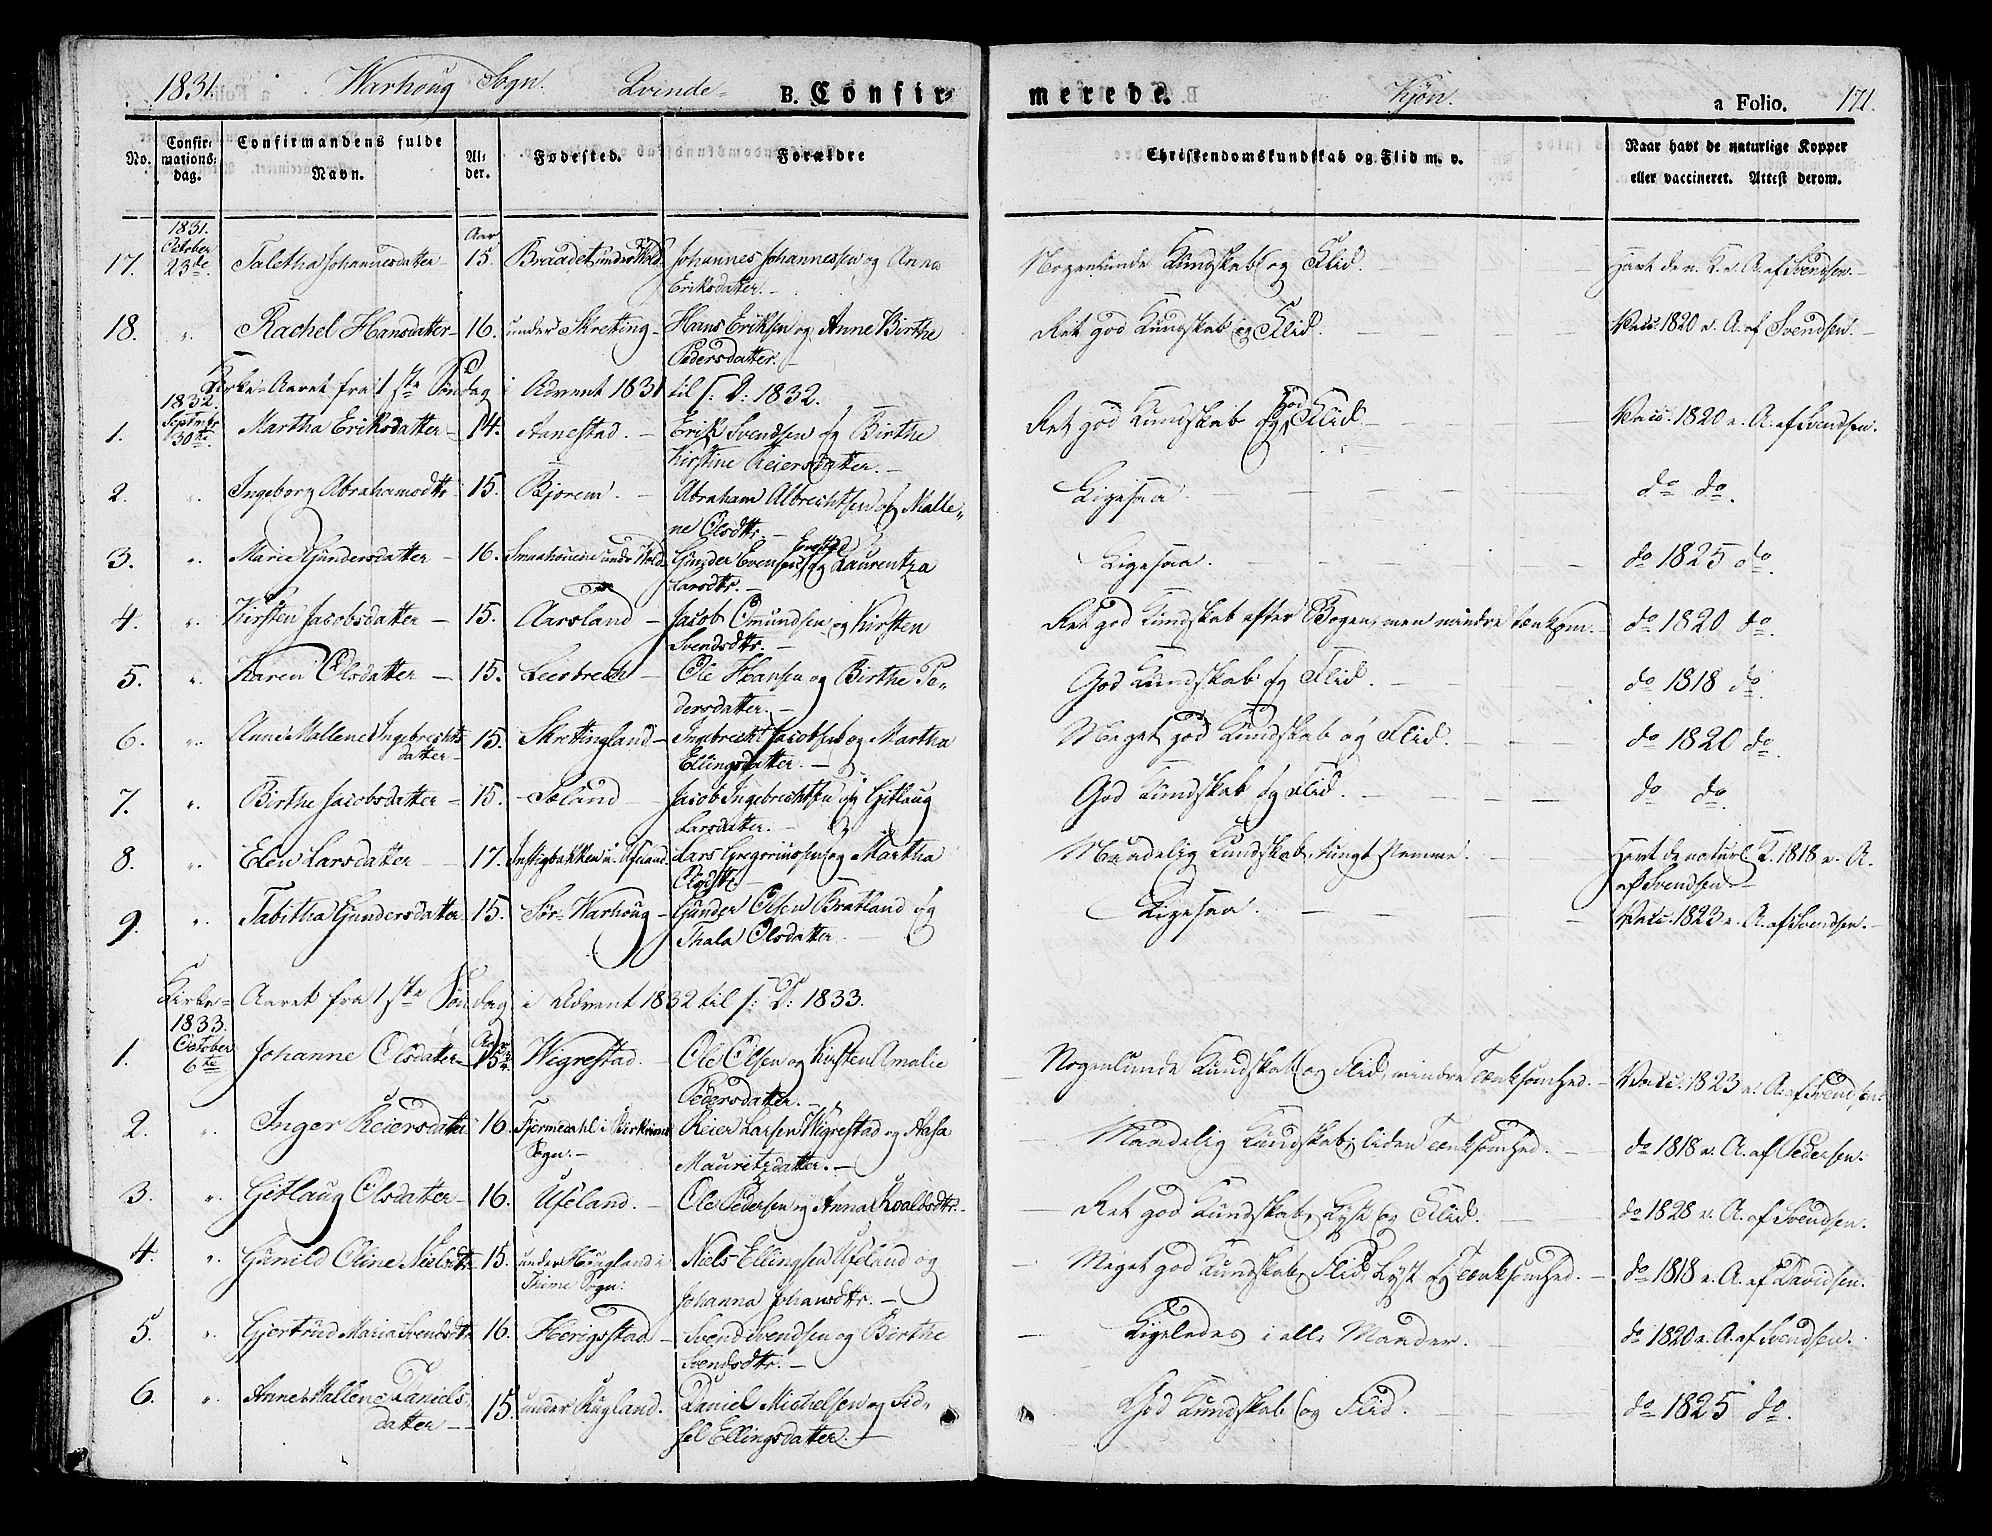 1831. Warhoug Sogn. Qvinde- B. Confirmerede. Kjön. a Folio. 171.
No. Confirmations-dag. Confirmandens fulde Navn. Alder. Fødested. Forældre Christendomskundskab og Flid m. v. Naar havt de naturlige Kopper eller vaccineret. Attest derom.
1831. Aar
17. October 23de Taletha Johannesdatter 15. Braadet under Hold. Johannes Johannessen og Anna Eriksdatter. Nogenlunde Kundskab og Flid. Havt de n. K. v. A. af Svendsen.
18. " Rachel Hansdatter 16. under Skretting Hans Eriksen og Anne Birthe Pedersdatter. Ret god Kundskab og Flid. Vacc. 1820 v. A. af Svendsen.
Kirke-Aaret fra 1ste Søndag i Advent 1831 til S: D: 1832.
1832.
1. Septmbr 30te Martha Eriksdatter 14. Aanestad. Erik Svendsen og Birthe Kirstine Reiersdatter. Ret god Kundskab og god Flid. Vacc. 1820 v. A. af Svendsen.
2. " Ingeborg Abrahamsdtr 15. Bjorem. Abraham Albrechtsen og Mallene Olsdtr. Ligesaa. do do.
3. " Maria Gundersdatter 16. under Hold. Gunder Evensen og Laurentza Larsdtr. Ligesaa. do 1825 do.
4. " Kirsten Jacobsdatter 15. Aarsland Jacob Omundsen og Kirsten Svendsdtr. Ret god Kundskab efter Bogen, men mindre tænksom. do 1820 do.
5. " Karen Olsdatter 15. Leersbrech Ole Hansen og Birthe Pedersdatter. God Kundskab og Flid. do 1818 do.
6. " Anne Mallene Ingebrechtsdatter 15. Skrettingland Ingebrecht Jacobsen og Martha Ellingsdatter. Meget god Kundskab og Flid. do 1820 do.
7. " Birthe Jacobsdatter 15. Soland Jacob Ingebrechtsen og Gitlaug Larsdatter. God Kundskab og Flid. do do.
8. " Elen Larsdatter 17. u. Ufeland. Lars Gregoriusen og Martha Olsdtr. Maadelig Kundskab, tungt Nemme. Havt de naturl. K. 1818 v. A. af Svendsen
9. " Tabitha Gundersdatter 15. Sør-Warhoug Gunder Olsen Bratland og Thala Olsdatter. Ligesaa. Vacc. 1823 v. A. af Svendsen.
Kirke-Aaret fra 1ste Søndag i Advent 1832 til S: D: 1833.
1833. Aar
1. October 6te Johanne Olsdatter 15 Wigrestad. Ole Olsen og Kirsten Amalie Pedersdatter. Nogenlunde Kundskab og Flid, mindre Tænksomhed. Vacc. 1823 v. A. af Svendsen.
2. " Inger Reiersdatter 16. Fjermedahl i Birkrems Sogn. Reier Larsen Wigrestad og Aasa Mauritzdatter. Maadelig Kundskab, liden Tænksomhed. do 1818 v. A. af Pedersen.
3. " Gitlaug Olsdatter 16. Ufeland. Ole Pedersen og Anna Roaldsdtr. Ret god Kundskab, Lyst og Flid. do 1828 v. A. af Svendsen.
4. " Gunild Oline Nielsdtr 15. under Hougland i Thime Sogn. Niels Ellingsen Ufeland og Johanna Johansdtr. Meget god Kundskab, Flid, Lyst og Tænksomhed. do 1818 v. A. af Davidsen.
5. " Gjertrud Maria Svendsdtr 16. Herigstad Svend Svendsen og Birthe Svendsdtr. Ligeledes i alle Maader. do 1820 v. A. af Svendsen.
6. " Anne Mallene Danielsdatter 15. under Rugland. Daniel Michelsen og Sidsel Ellingsdatter. God Kundskab og Flid. do 1825 do.